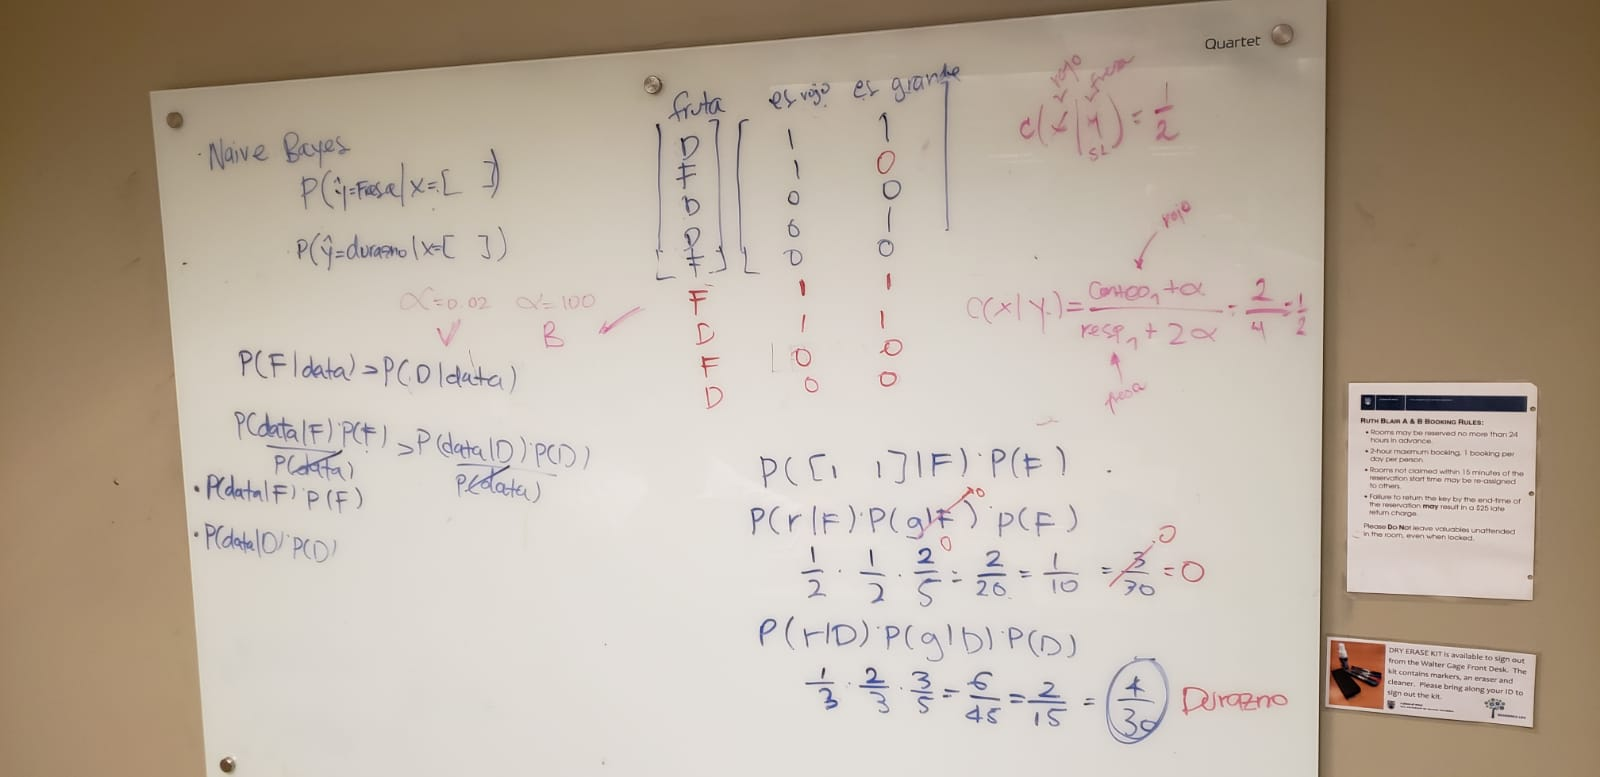 Quartet
· Naive Bayes
P(ŷ=Fresa|x=[ ])
P(ŷ=durazno|x=[ ])
α=0.02 α=100
V B
P(F|data)>P(D|data)
P(data|F)·P(F)/P(data) > P(data|D)·P(D)/P(data)
· P(data|F)·P(F)
· P(data|D)·P(D)
fruta es rojo es grande
D 1 1
F 1 0
D 0 0
D 0 1
F 0 0
F 1 1
D 1 1
F 0 0
D 0 0
rojo fresa
C(x|y)=1/2
rojo
C(x|y)= (conteo₁+α)/(resp₁+2α) = 2/4 = 1/2
fresa
P([1, 1]|F)·P(F)
P(r|F)·P(g|F)·P(F)
0
0
1/2 · 1/2 · 2/5 = 2/20 = 1/10 = 3/30 = 0
0
P(r|D)·P(g|D)·P(D)
1/3 · 2/3 · 3/5 = 6/45 = 2/15 = 4/30 Durazno
RUTH BLAIR A & B BOOKING RULES:
• Rooms may be reserved no more than 24
hours in advance.
• 2-hour maximum booking, 1 booking per
day per person.
• Rooms not claimed within 15 minutes of the
reservation start time may be re-assigned
to others.
• Failure to return the key by the end-time of
the reservation may result in a $25 late
return charge.
Please Do Not leave valuables unattended
in the room, even when locked.
DRY ERASE KIT is available to sign out
from the Walter Gage Front Desk. The
kit contains markers, an eraser and
cleaner. Please bring along your ID to
sign out the kit.